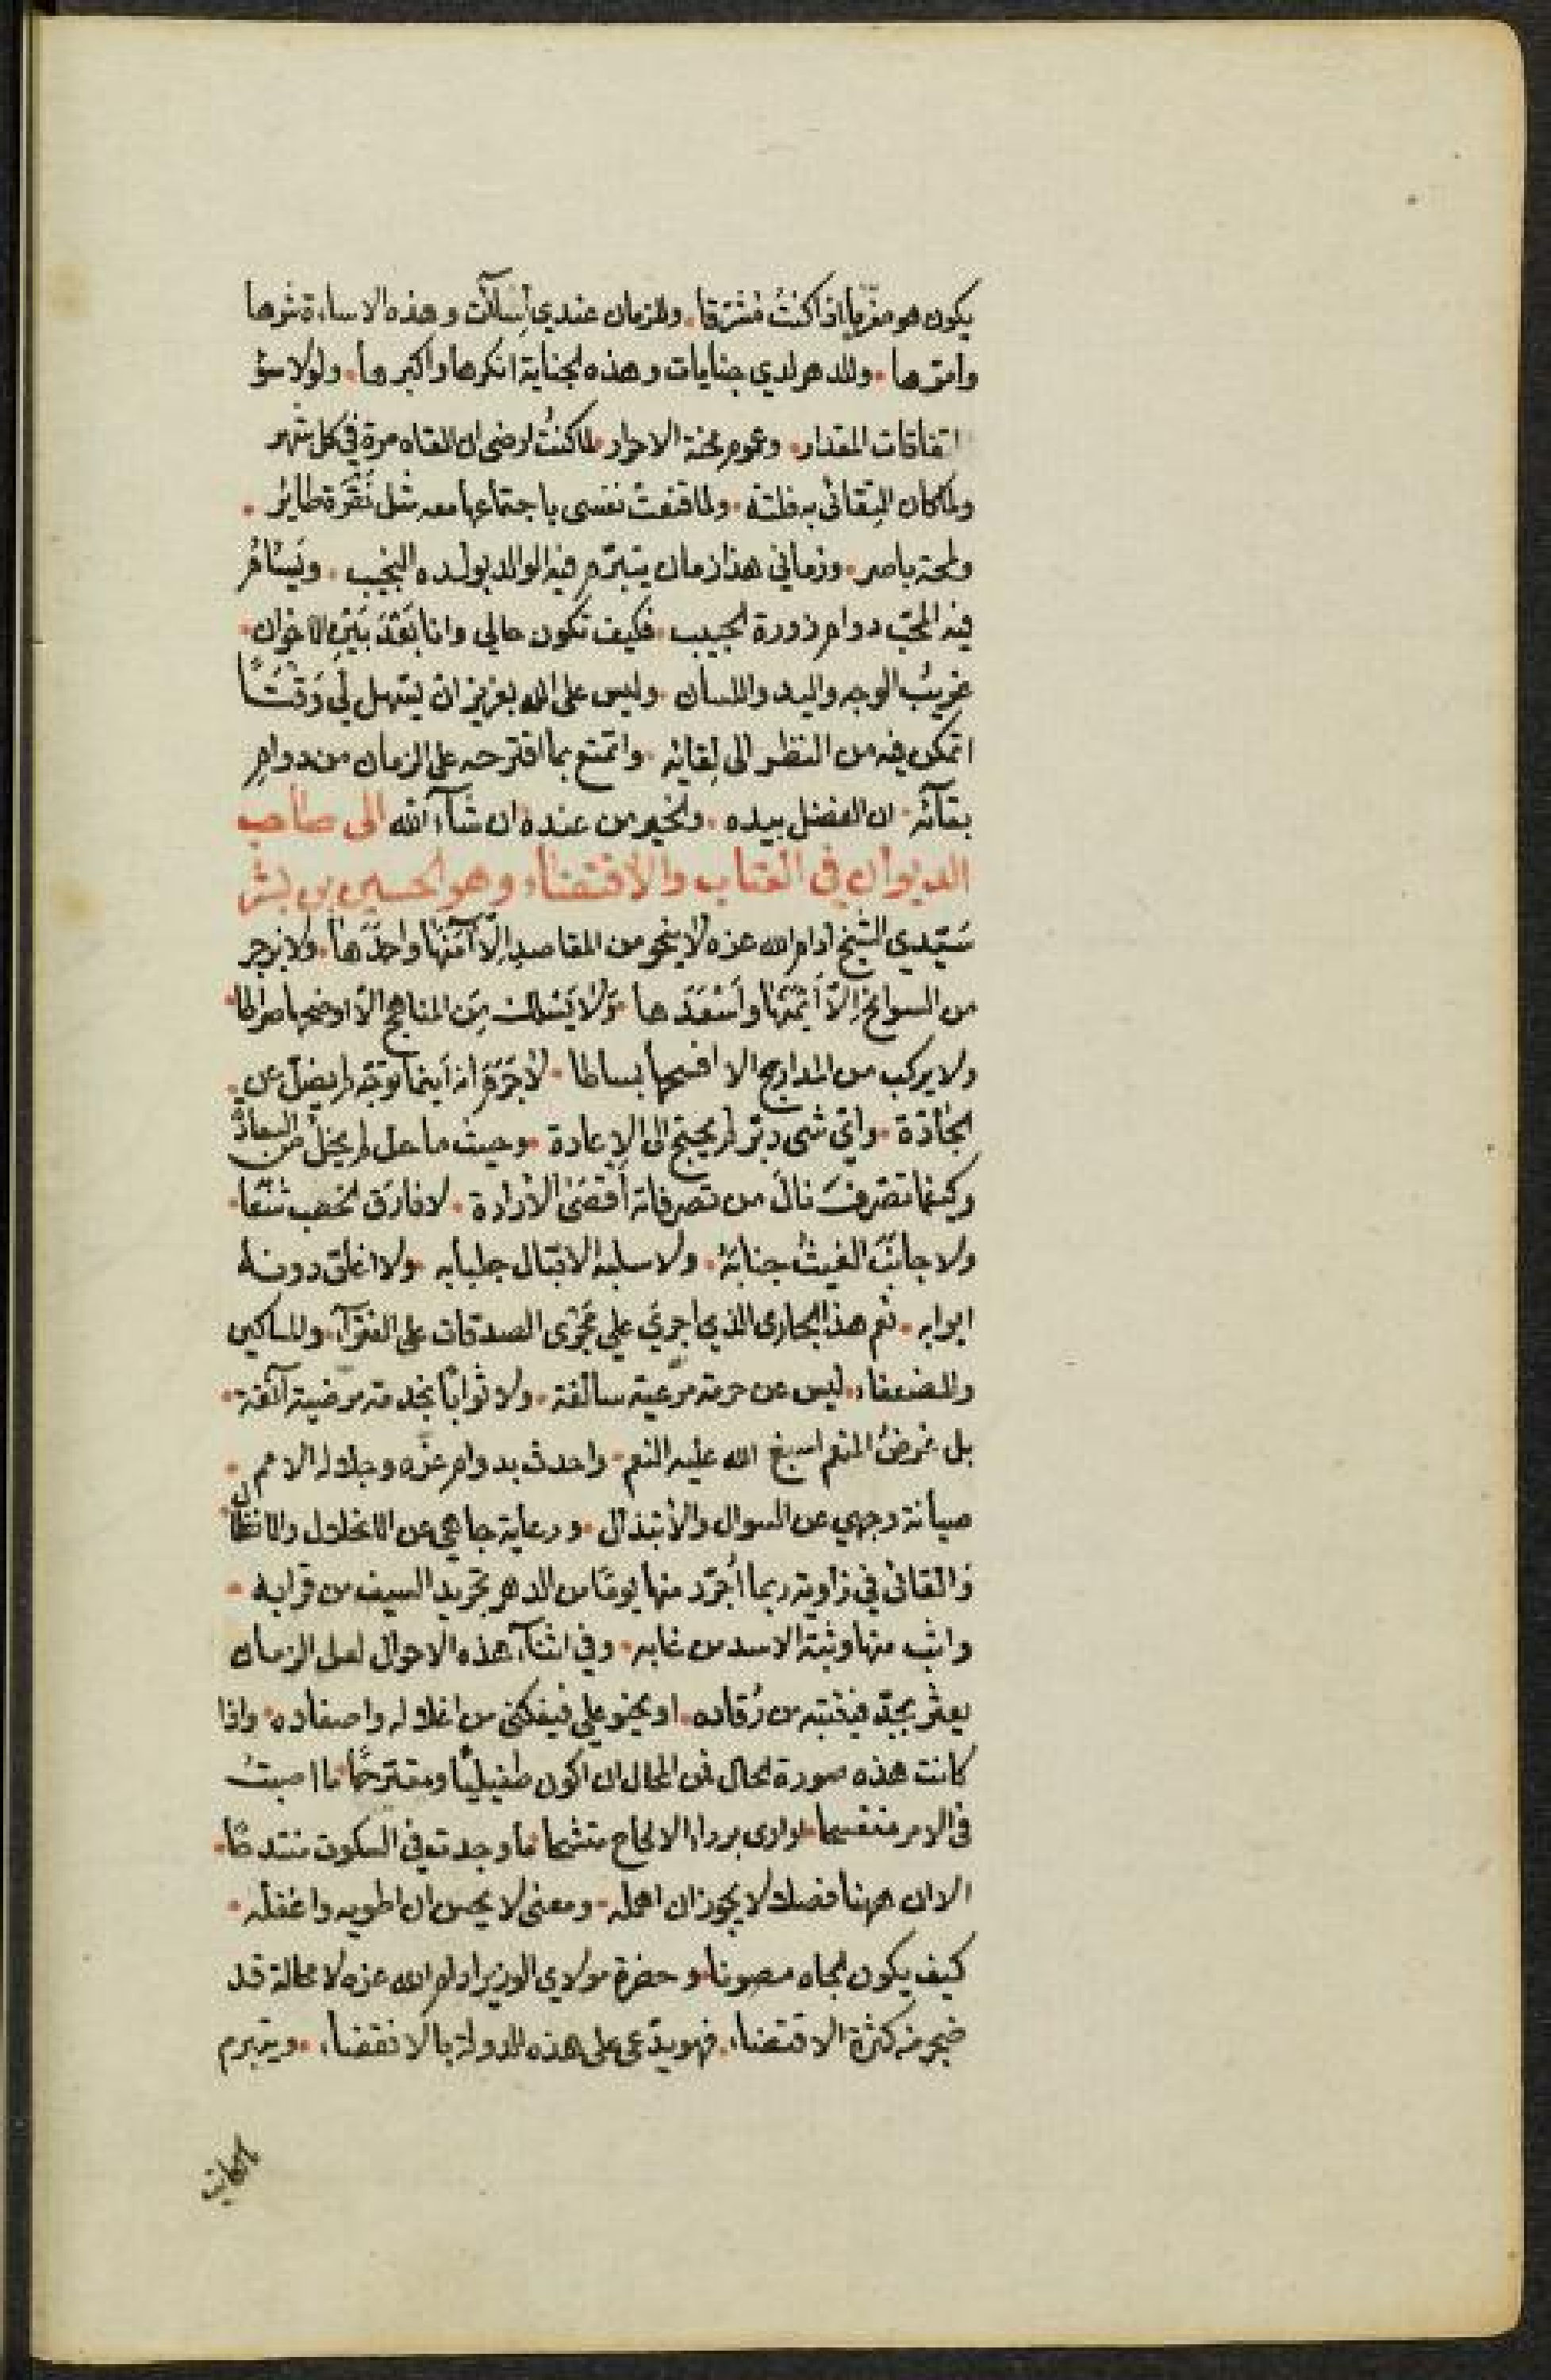 يكون هو مغرّبا اذا كنتُ مُشرّقا. وللزمان عندي إسآات وهذه الاساءة شوها
وامرّها. وللدهر لدي جنايات وهذه الجناية انكرها واكبرها. ولولا سؤ
اتفاقات المقدار. وعموم محنة الاحرار. لما كنتُ ارضى ان القاه مرة في كل شهر
ولما كان التقائي به فلتة. ولما قنعت نفسي باجتماعها معه مثل نَقْرة طائر.
ولمحة باصر. وزماني هذا زمان يتبرّم فيه الوالد بولده النجيب. ويَسْأمُ
فيه المحبّ دوام زورة الحبيب. فكيف تكون حالي وانا بَعْدَ بَيْن الاخوان.
غريبُ الوجه واليد واللسان. وليس على الله بعزيز ان يسهل لي وَقتًا
اتمكن فيه من النظر الى لقائه. واتمتع بما اقترحه على الزمان من دوام
بقآئه. ان الفضل بيده. والخير من عنده ان شآء الله الى صاحب
الديوان في العتاب والاقتضاء وهو الحسين بن بشر
سَيّدي الشيخ ادام الله عزه لا ينحو من المقاصد الّا آمَنَها واحدّها. ولا يزجر
من السوانح الّا ايمنَها واَسْعَدَها. ولا يَسلك مِن المناهج الّا اوضحها صراطا.
ولا يركب من المدارج الا افسحها بساطا. لا جَرَمَ انه اينما توجّه لم يضلّ عن
الجادّة. وايّ شي دبّر لم يحتج الى الاعادة. وحيث ما حل لم يخل من السعادة
وكيفما تصرفَ نالَ من تصرفاته أقصَى الارادة. لا فارَق الخصب شعابه.
ولا جانَبَ الغيثُ جنابَهُ. ولا سلبه الاقبال جلبابه. ولا اغلق دونه
ابوابه. ثم هذا الجاري الذي اجري علي مَجْرى الصدقات على الفقرآء. والمساكين
والضعفاء. ليس عن حرمة مرعية سالفة. ولا ثوابًا بخدمة مرضية آنفة.
بل غرضُ المنعم اسبغ الله عليه النعم. واحدث بدوام عزّه وجلاله الامم.
صيانة وجهي عن السوال والابتذال. ورعاية جاهي عن الاخلال
والقائي في زاوية ربما أُجرّد منها يومًا من الدهر تجريد السيف من قرابه.
واثب منها وثبة الاسد من غابه. وفي اثنآء هذه الاحوال لعل الزمان
يعثر بجدّ فينبته من رُقاده. او يحنو علي فيفكني من اغلاله واصفاده. واذا
كانت هذه صورة الحال فمن المحال ان اكون طفيليًا ومقترحًا ما اصبتُ
في الامر متفسحا. او ارى برداء الالحاح متشحا ما وجدت في السكوت منتدحًا.
الا ان ههنا فصلا لا يجوز ان اهمله. ومعنى لا يحسن ان اطويه واغفله.
كيف يكون الجاه مصونا. وحضرة مولاي الوزير ادام الله عزه لا محالة قد
ضجر من كثرة الاقتضاء. فهو يدّعي على هذه الدولة بالانقضاء. ويتبرم